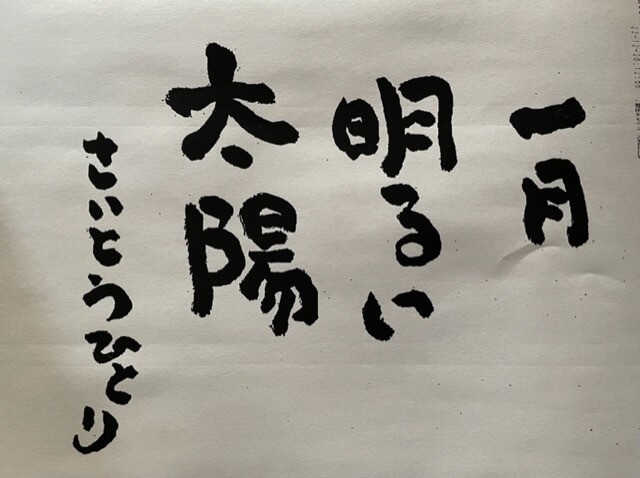 一月
明るい
太陽
さいとうひとり